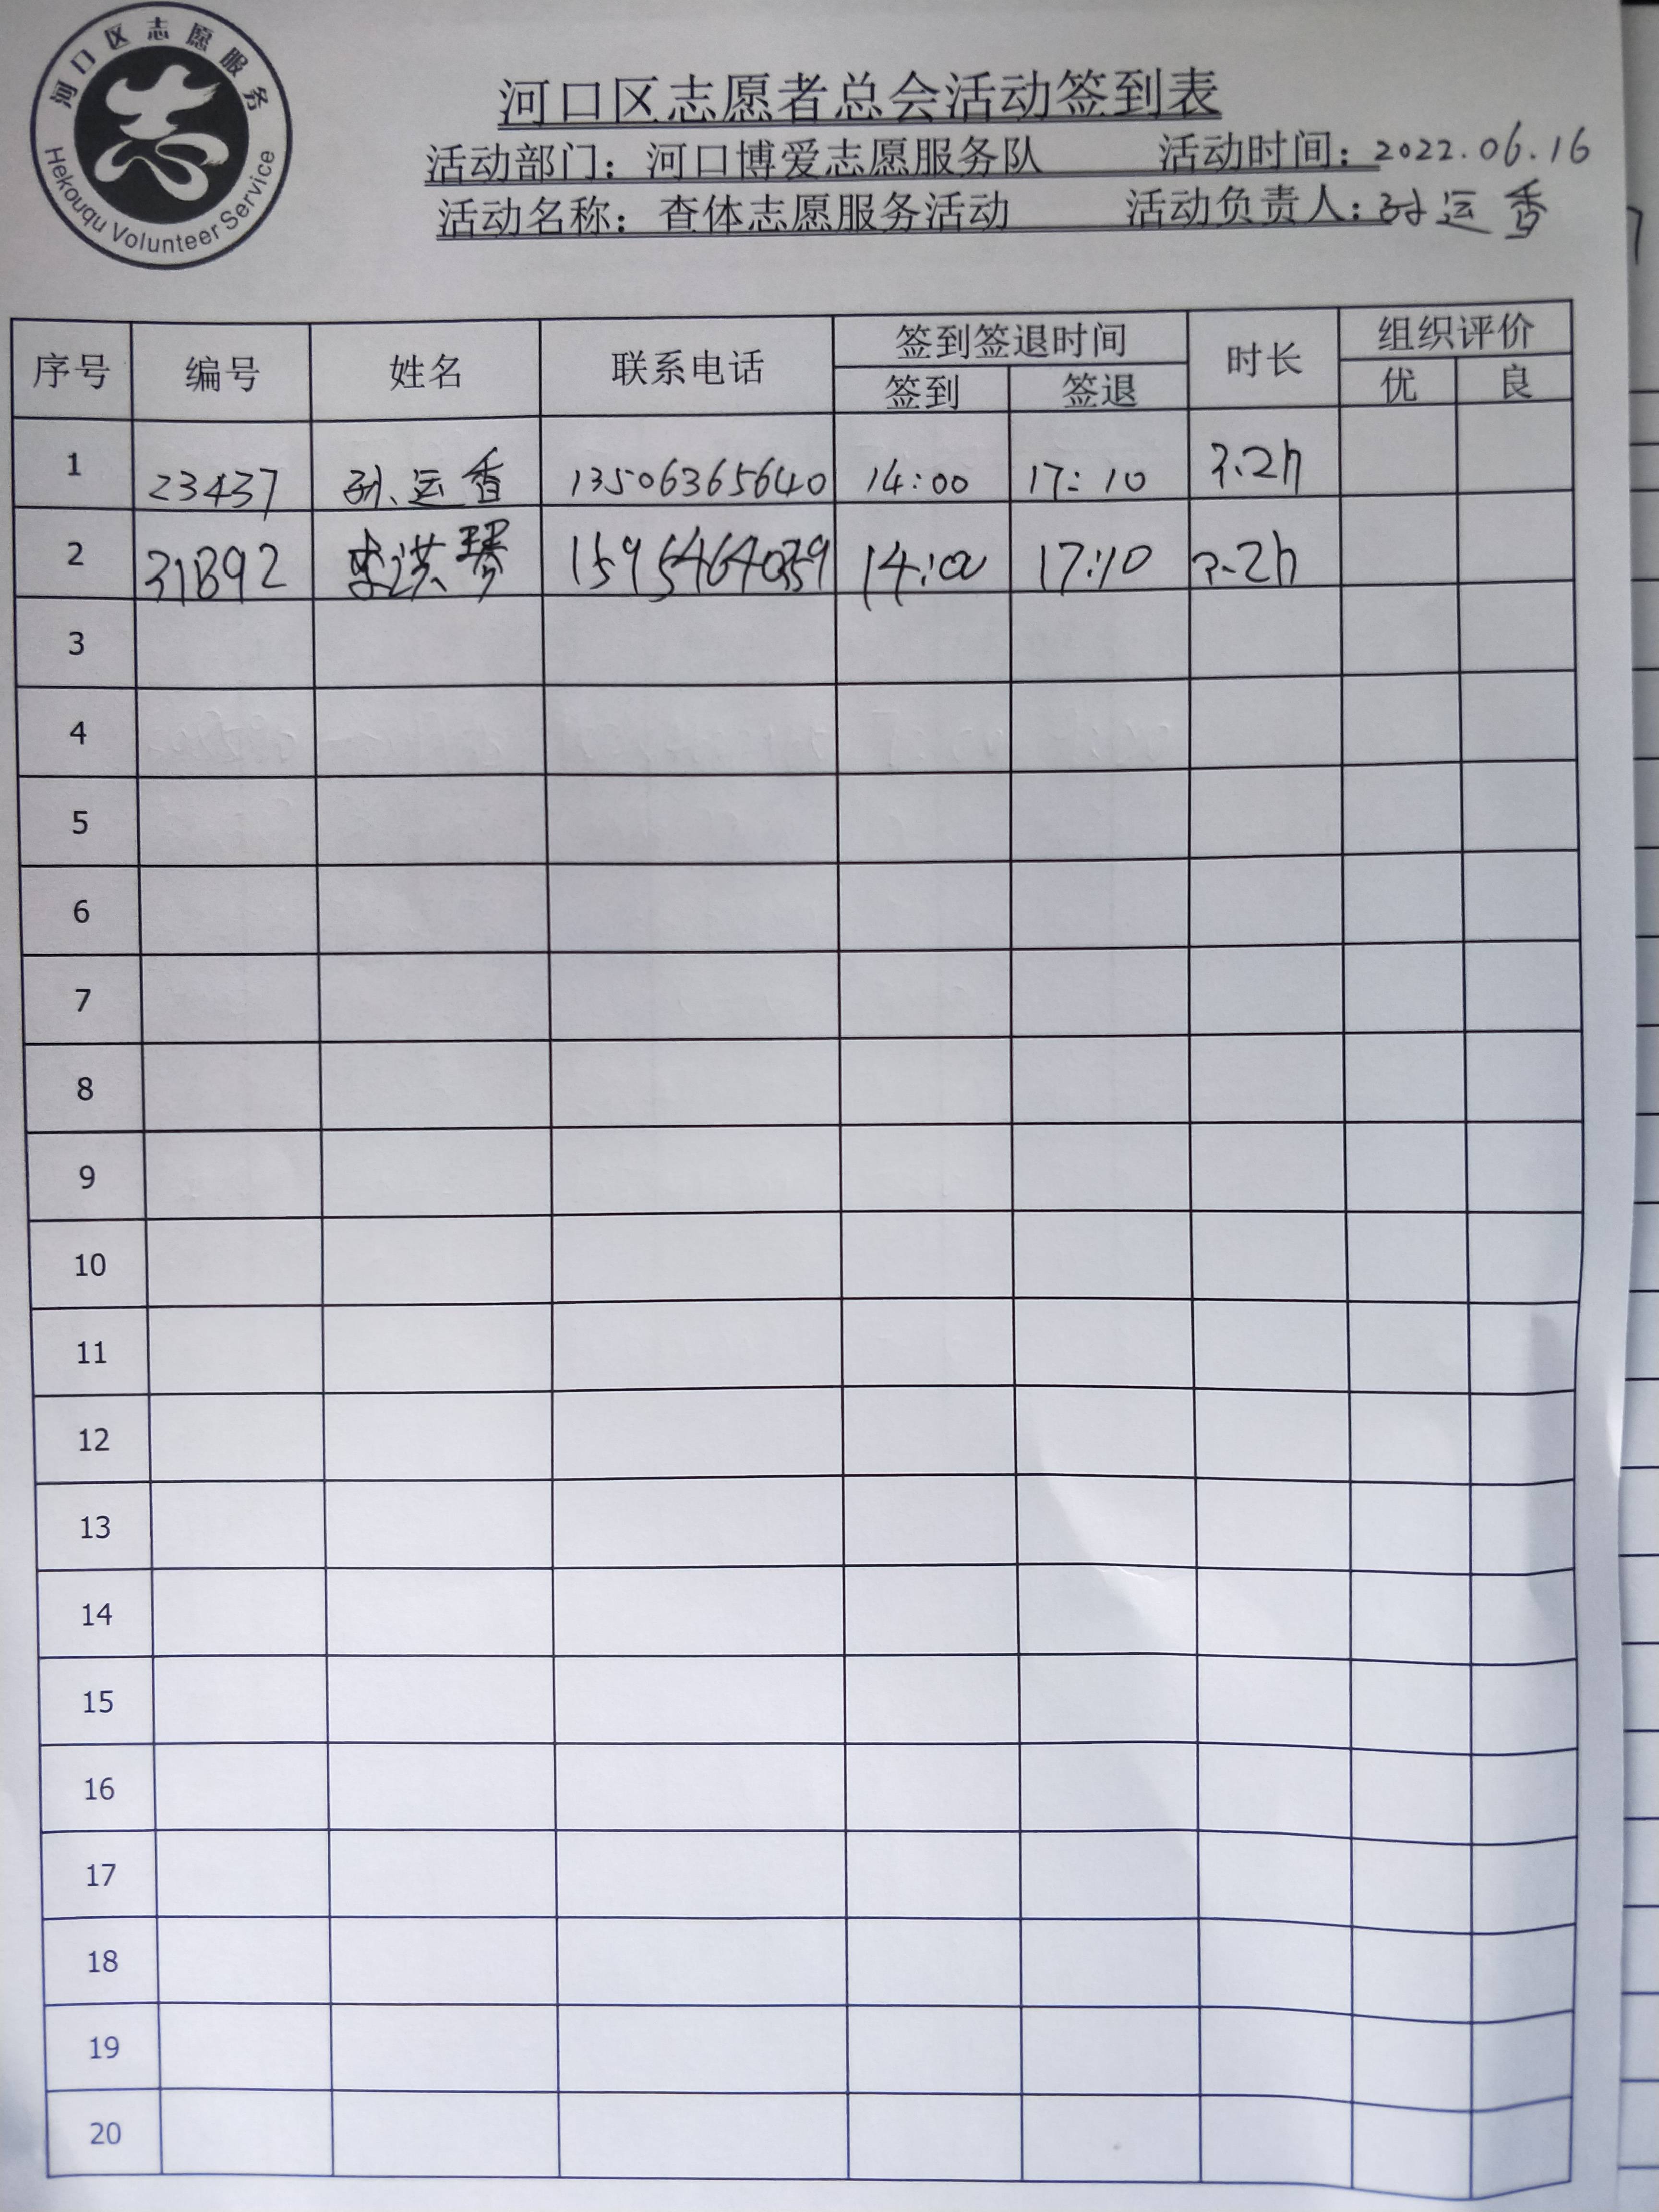 河口区志愿服务
Hekouqu Volunteer Service
河口区志愿者总会活动签到表
活动部门：河口博爱志愿服务队 活动时间：2022.06.16
活动名称：查体志愿服务活动 活动负责人：孙运香
序号 编号 姓名 联系电话 签到签退时间 时长 组织评价
签到 签退 优 良
1 23437 孙运香 13506365640 14:00 17:10 3.2h
2 31892 洪琴 14:00 17:10 3.2h
3
4
5
6
7
8
9
10
11
12
13
14
15
16
17
18
19
20